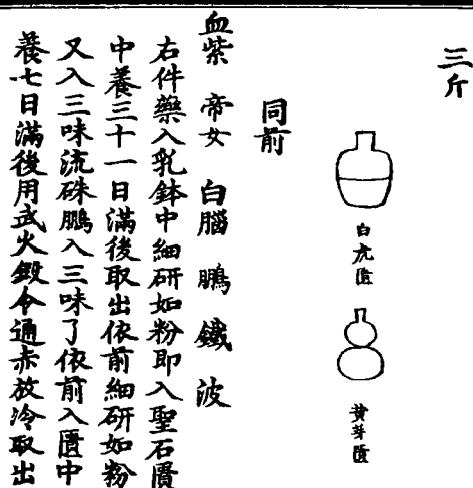 三斤
白虎匱
黄芽匱
同前
血紫 帝女 白腦 鵬 鐵 波
右件藥入乳鉢中細研如粉即入聖石匱
中養三十一日滿後取出依前細研如粉
又入三味流硃鵬入三味了依前入匱中
養七日滿後用武火鍛令通赤放冷取出